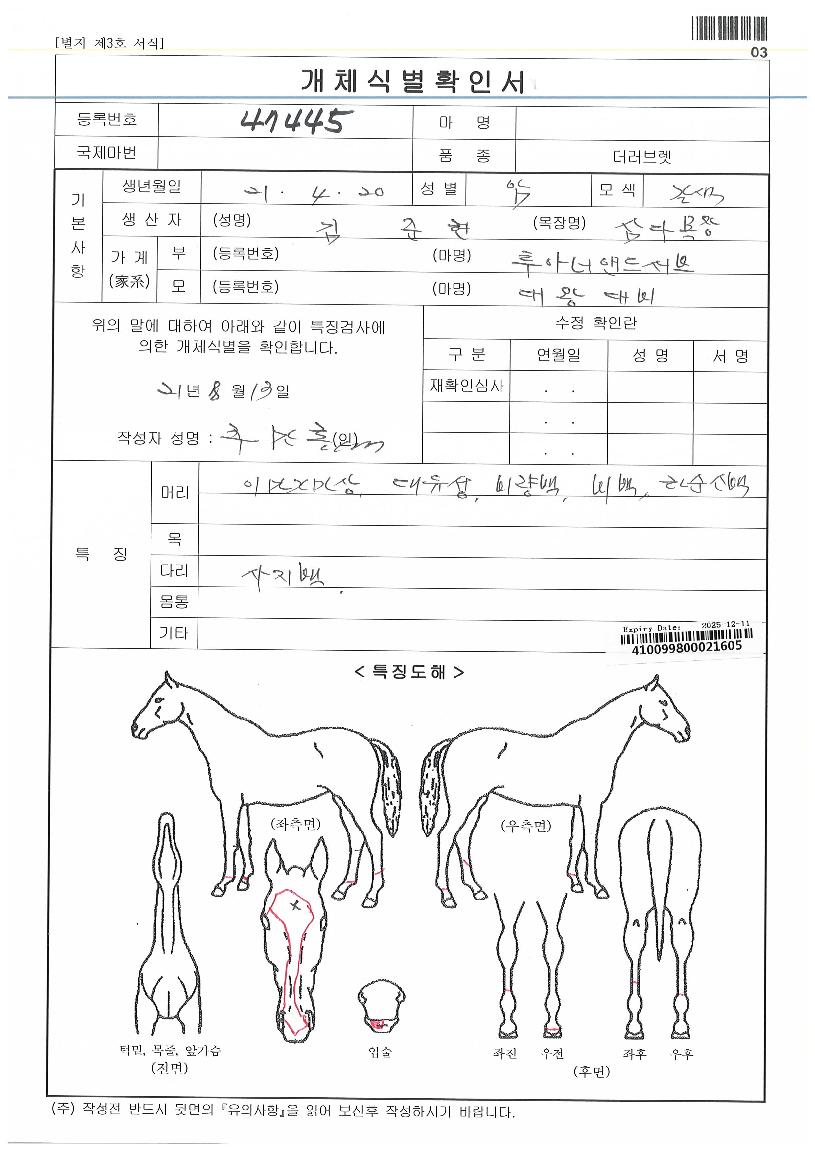 [별지 제3호 서식]
03
개체식별확인서
등록번호 47445 마 명
국제마번 품 종 더러브렛
기본사항
생년월일 21. 4. 20 성 별 암 모 색 갈색
생 산 자 (성명) 김 준 현 (목장명) 삼다목장
가 계 (家系) 부 (등록번호) (마명) 투아너앤드서브
모 (등록번호) (마명) 대왕대비
위의 말에 대하여 아래와 같이 특징검사에
의한 개체식별을 확인합니다.
21년 8월 13일
작성자 성명 : (인)
수정 확인란
구 분 연월일 성 명 서 명
재확인심사 . .
. .
. .
특 징
머리 대유성, 비량백, 비백, 하순신백
목
다리 사지백
몸통
기타
Expiry Date: 2025-12-11
410099800021605
< 특징도해 >
(좌측면) (우측면)
턱밑, 목줄, 앞가슴
(전면)
입술
좌전 우전 좌후 우후
(후면)
(주) 작성전 반드시 뒷면의 『유의사항』을 읽어 보신후 작성하시기 바랍니다.